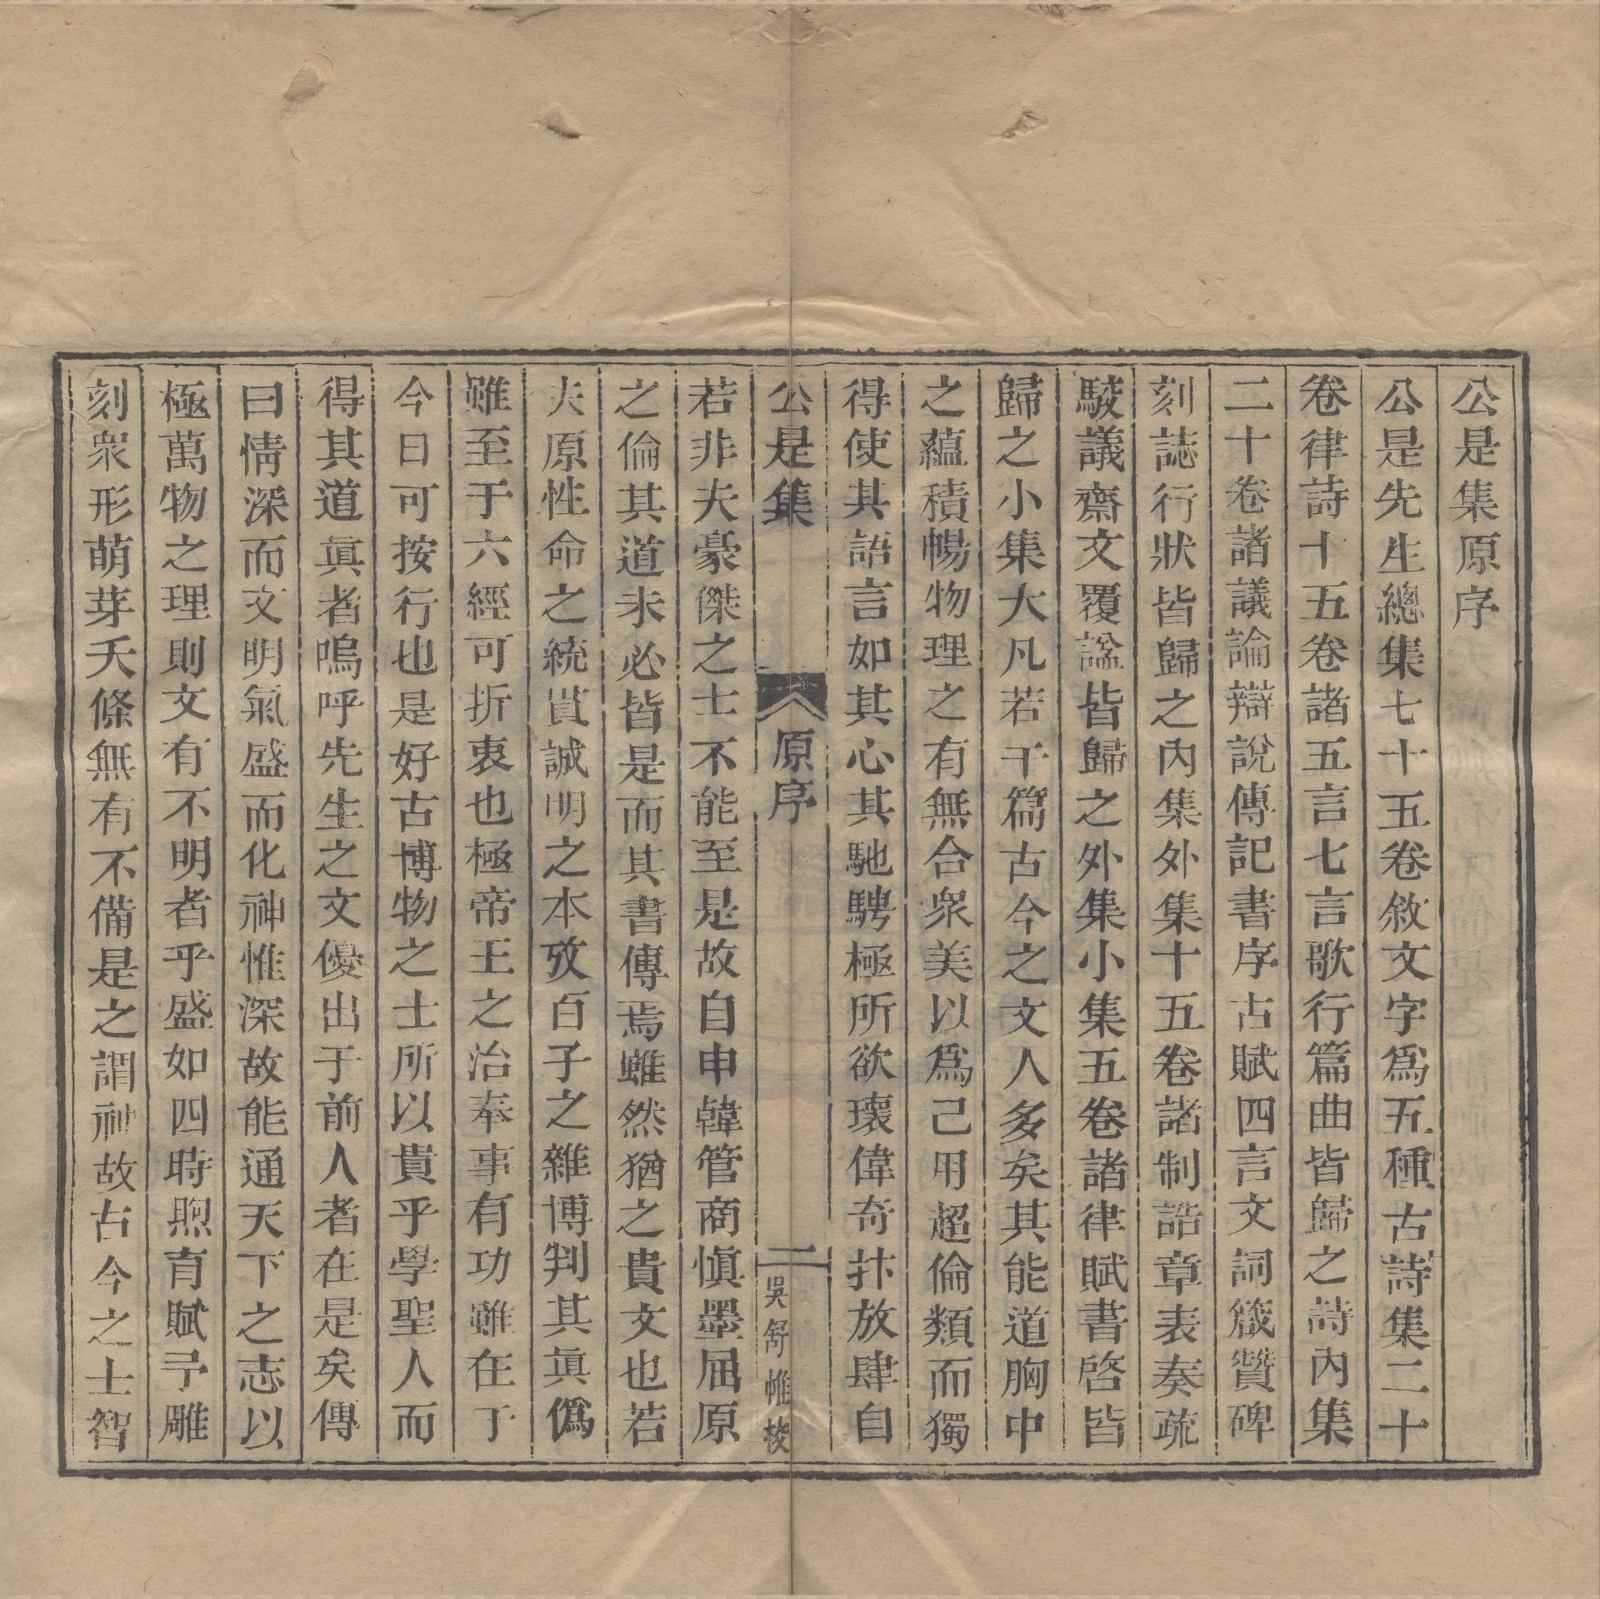 公是集原序
公是先生總集七十五卷敘文字爲五種古詩集二十
卷律詩十五卷諸五言七言歌行篇曲皆歸之詩內集
二十卷諸議論辯說傳記書序古賦四言文詞箴贊碑
刻誌行狀皆歸之內集外集十五卷諸制誥章表奏疏
駮議齋文覆諡皆歸之外集小集五卷諸律賦書啓皆
歸之小集大凡若干篇古今之文人多矣其能道胸中
之蘊積暢物理之有無合衆美以爲己用超倫類而獨
得使其語言如其心其馳騁極所欲瓌偉奇抃放肆自
公是集
原序
一
吳舒帷校
若非夫豪傑之士不能至是故自申韓管商愼墨屈原
之倫其道未必皆是而其書傳焉雖然猶之貴文也若
夫原性命之統貫誠明之本攷百子之雜博判其眞僞
雖至于六經可折衷也極帝王之治奉事有功雖在于
今日可按行也是好古博物之士所以貴乎學聖人而
得其道眞者嗚呼先生之文優出于前人者在是矣傳
曰情深而文明氣盛而化神惟深故能通天下之志以
極萬物之理則文有不明者乎盛如四時煦育賦予雕
刻衆形萌芽夭條無有不備是之謂神故古今之士智